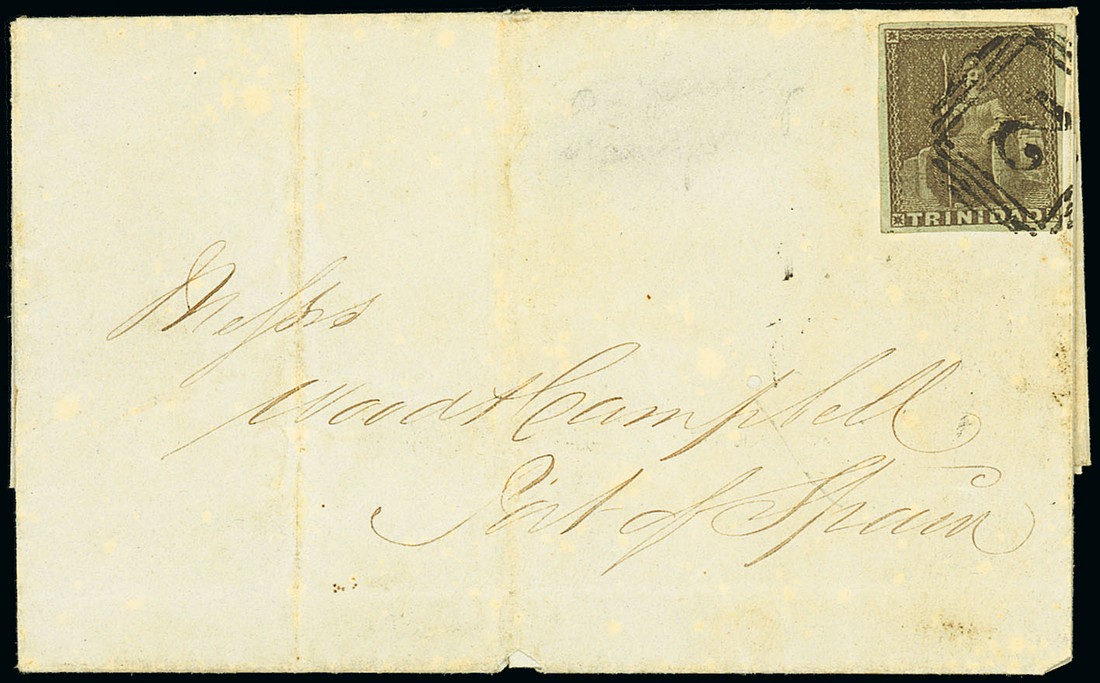 TRINIDAD
2
Messrs
Wood & Campbell
Port of Spain